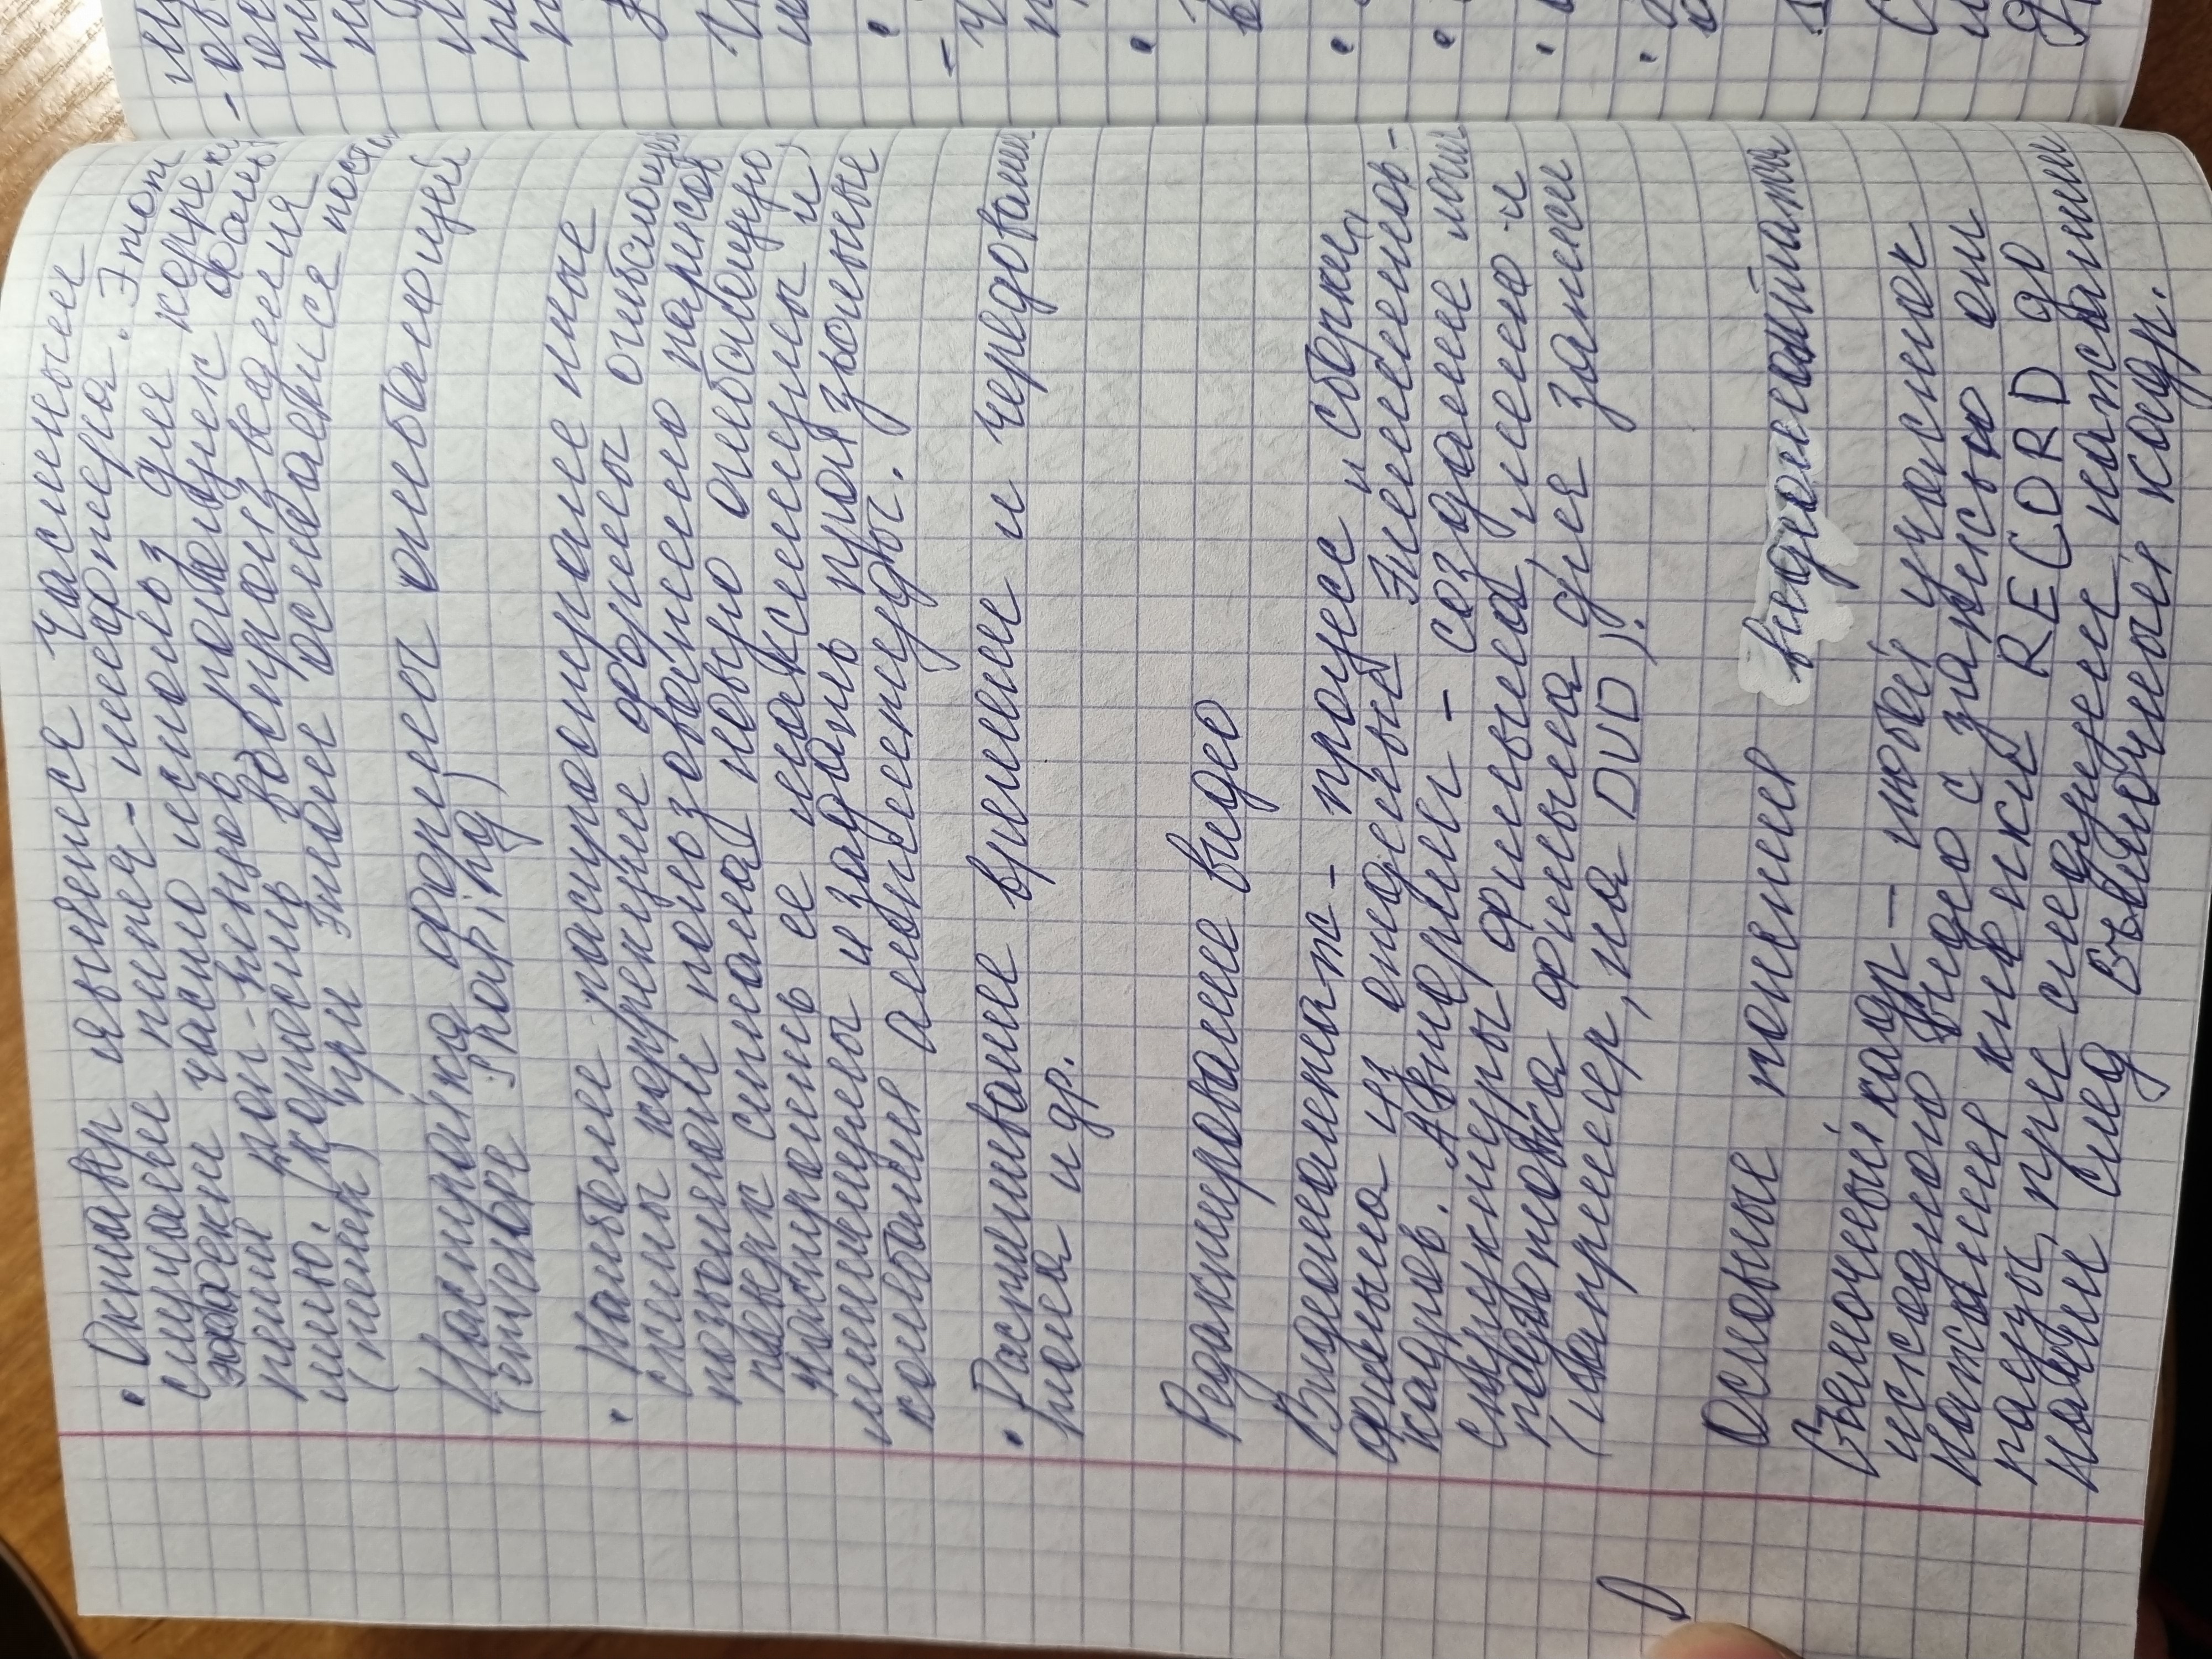 • Октавер является частным
случаем питч-шифтера. Этот
эффект часто использ для коррек
пения поп-певцов, поющих фаль
шиво. Скорость воспроизведения
(темп) при этом остается пост
Настройка формы огибающей
(envelope shaping)
• Наиболее распространенные
схемы коррекции формы огибающей
позволяют пользователю нарисов
поверх сигнала новую огибающую,
настроить ее максимумы и
минимумы и задать произвольные
колебания амплитуды.
• Растягивание времени и чередование
тона и др.
Редактирование видео
Видеомонтаж - процесс „сборки„
фильма из отдельных элементов-
кадров. Авторинг - создание логич
структуры фильма, меню и
подготовка фильма для записи
(например, на DVD).
Основные понятия видеомонтажа
Съемочный кадр - любой участок
исходного видео с записью от
нажатия кнопки RECORD до
паузы, при следующем нажатии
начин след съемочный кадр.